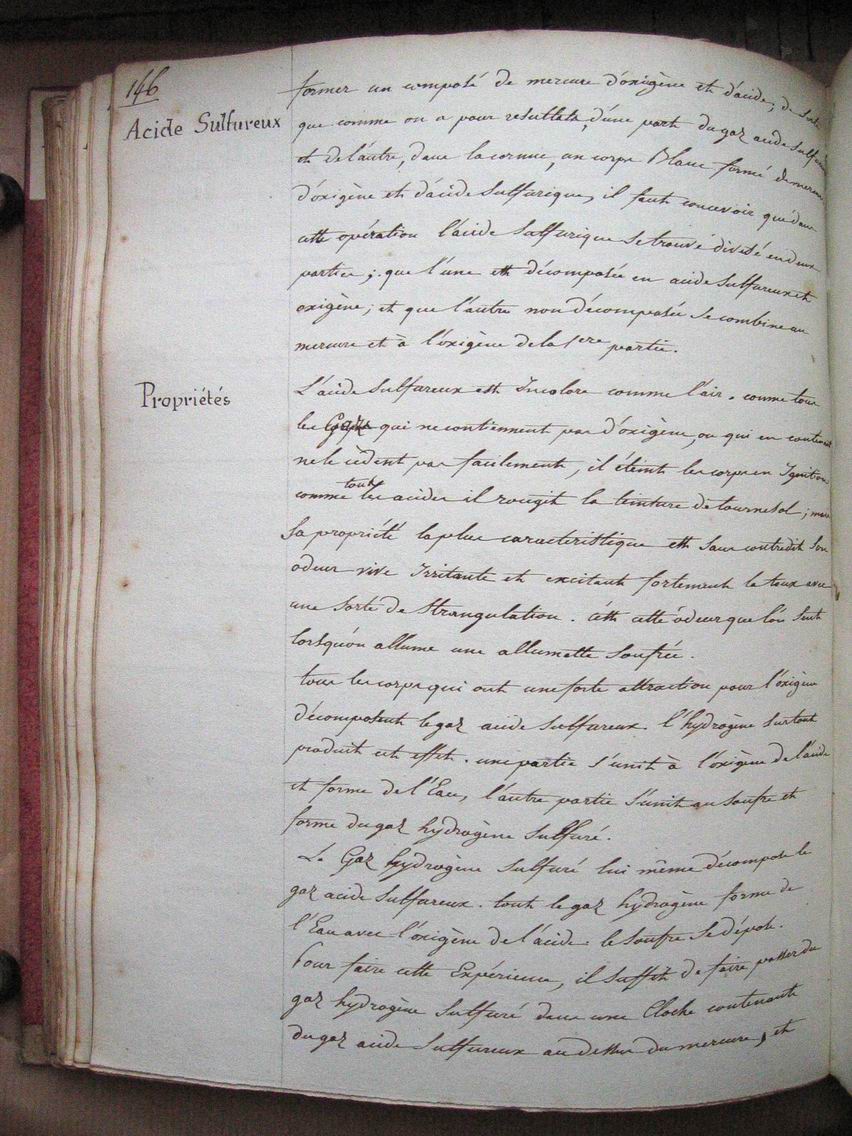 146
Acide Sulfureux
former un composé de mercure d'oxigène et d'acide; de sorte
que comme on a pour resultats, d'une part du gaz acide sulfureux
et de l'autre, dans la cornue, un corps Blanc formé de mercure
d'oxigène et d'acide Sulfurique, il faut concevoir que dans
cette opération l'acide Sulfurique se trouve divisé en deux
parties; que l'une est décomposée en acide Sulfureux et
oxigène; et que l'autre non décomposée se combine au
mercure et à l'oxigène de la 1ere partie.
Propriétés
L'acide Sulfureux est Incolore comme l'air. comme tous
les Gaz qui ne contiennent pas d'oxigène, ou qui en contenant
ne le cèdent pas facilement, il éteint les corps en Ignition
comme tous les acides il rougit la teinture de tournesol; mais
Sa propriété la plus caracteristique est sans contredit Son
odeur vive Irritante et excitant fortement la toux avec
une Sorte de Strangulation. c'est cette odeur que l'on Sent
lorsqu'on allume une allumette Soufrée.
tous les corps qui ont une forte attraction pour l'oxigène
décomposent le gaz acide Sulfureux. l'hydrogène Surtout
produit cet effet. une partie s'unit à l'oxigène de l'acide
et forme de l'Eau, l'autre partie s'unit au Soufre et
forme du gaz hydrogène Sulfuré.
Le Gaz hydrogène Sulfuré lui même décompose le
gaz acide Sulfureux. tout le gaz hydrogène forme de
l'Eau avec l'oxigène de l'acide. le Soufre Se dépose.
Pour faire cette Expérience, il suffit de faire passer du
gaz hydrogène Sulfuré dans une Cloche contenante
du gaz acide Sulfureux au dessus du mercure, et